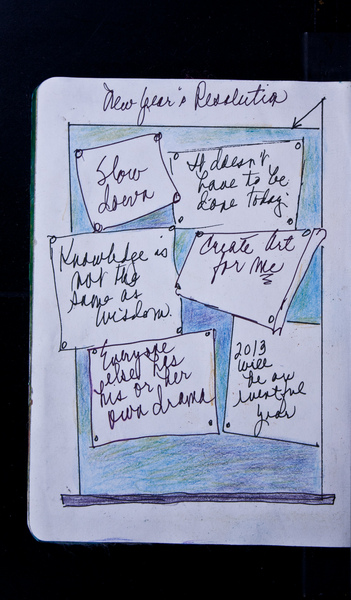 New Year's Resolution
Slow
down
It doesn't
have to be
done today.
Knowledge is
not the
same as
wisdom.
Create Art
for me
Everyone
else has
his or her
own drama
2013
will
be an
eventful
year